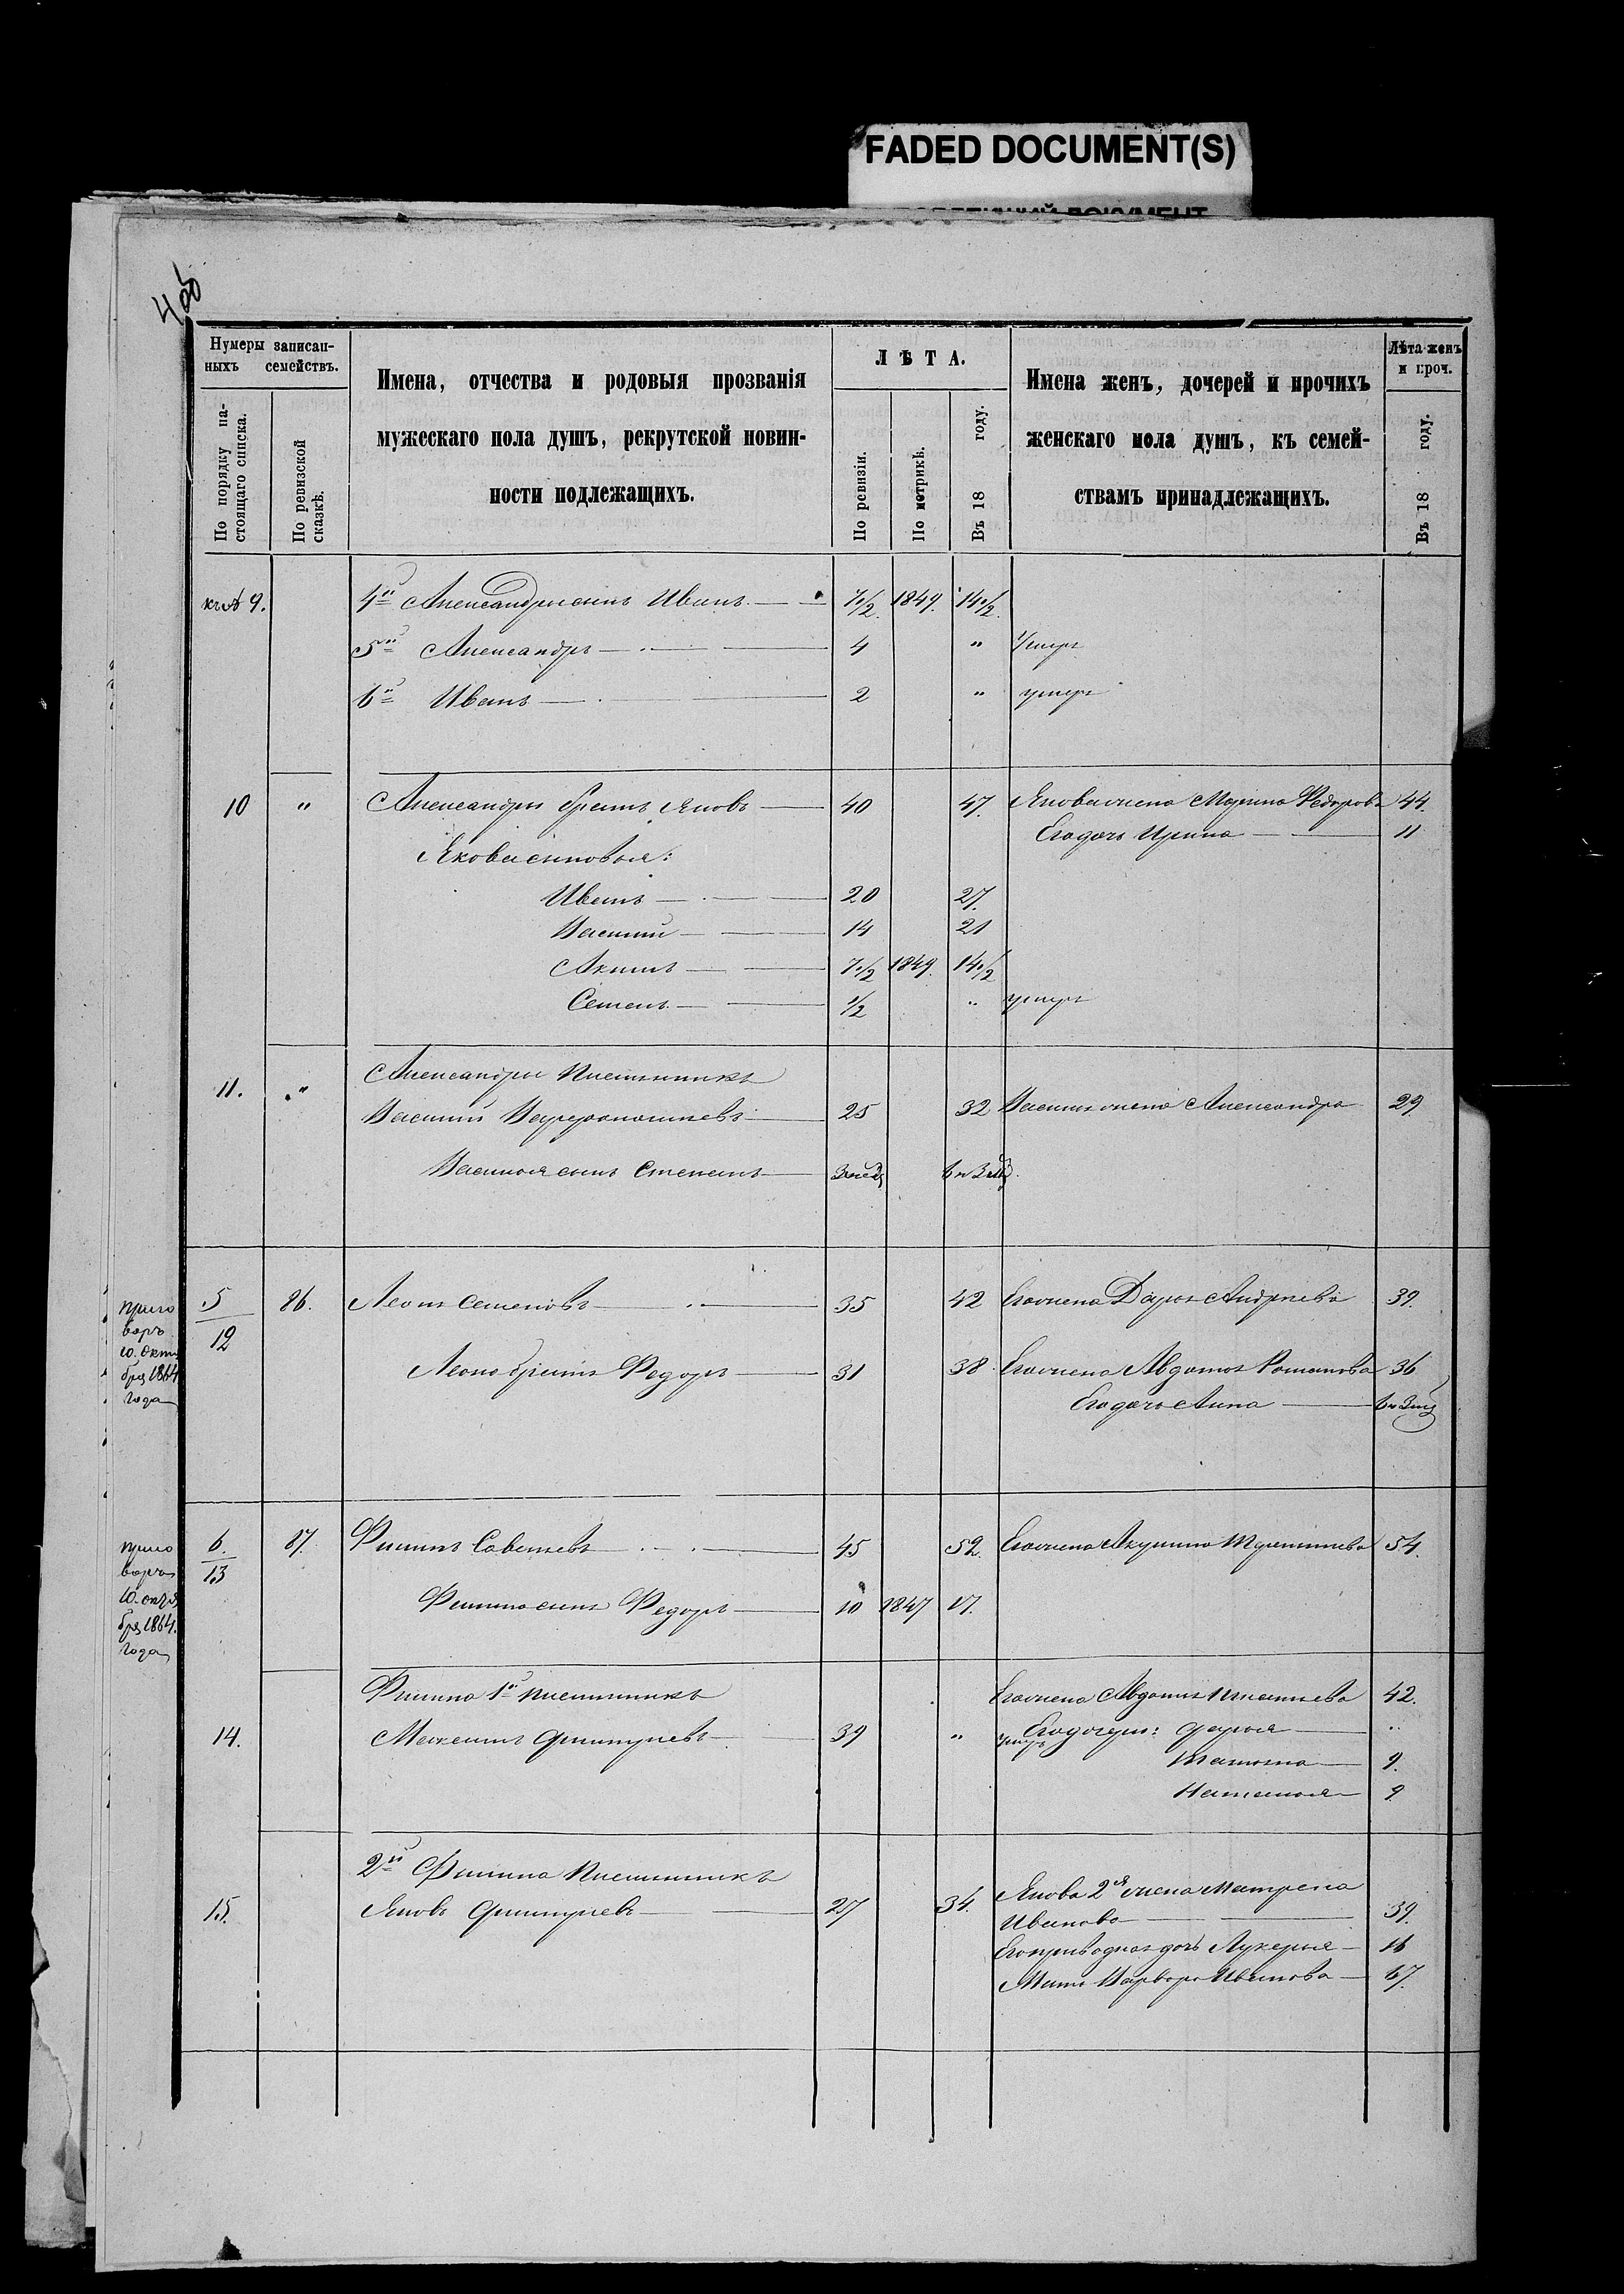 FADED DOCUMENT(S)
Нумеры записан-
ныхъ семействъ.
По порядку на-
стоящаго списка.
По ревизской
сказкѣ.
Имена, отчества и родовыя прозванія
мужескаго пола душъ, рекрутской повин-
ности подлежащихъ.
ЛѢТА.
По ревизіи.
По метрикѣ.
Въ 18 году.
Имена женъ, дочерей и прочихъ
женскаго пола душъ, къ семей-
ствамъ принадлежащихъ.
Лѣта женъ
и проч.
Въ 18 году.
къ № 9. 4й Александра сынъ Иванъ 7 1/2 1849. 14 1/2
5й Александръ 4 " Умеръ
6й Иванъ 2 " умеръ
10 " Александра братъ Яковъ 40 47. Якова жена Марина Федорова 44.
Его дочь Ирина 11
Якова сыновья:
Иванъ 20 27.
Василий 14 21
Акимъ 7 1/2 1849. 14 1/2
Семенъ 1/2 " умеръ
11. " Александра племянникъ
Василий 25 32 Василья жена Александра 29
Василья сынъ Степанъ
5/12 86. Леонъ Семеновъ 35 42 Его жена Дарья Андреева 39.
Леона братъ Федоръ 31 38 Его жена Авдотья Романова 36
Его дочь Анна
приго
воръ
10. октя
бря 1864
года
6./13 87. Филипъ Савельевъ 45 52. Его жена Акулина 54.
Филипа сынъ Федоръ 10 1847 17.
приго
воръ
10. октя
бря 1864.
года
Филипа 1й племянникъ Его жена Авдотья 42.
14. Максимъ Дмитриевъ 39 " умеръ Его дочери: Дарья "
Татьяна 9.
Наталья 9
2й Филипа племянникъ
15. Яковъ Дмитриевъ 27 34. Якова 2я жена Матрена
Иванова 39.
Его приводная дочь Лукерья 16
Мать Варвара Иванова 67.